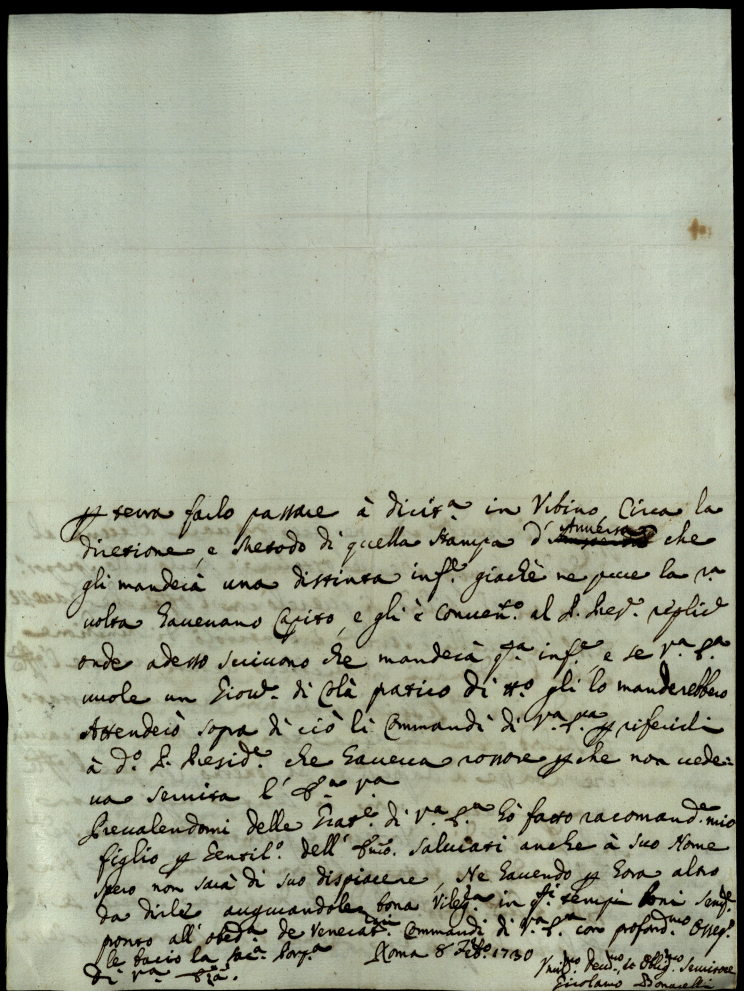 terra farlo passare à dicit.a in Vrbino, Circa la
direzione, e Metodo di quella stampa d' Anversa che
gli manderà una distinta inf.e giachè ne pure la p.a
volta havevano Capito, e gli è Conven.to al P. replic
onde adesso scrivono che manderà q.ta inf.e, e se V.a S.a
vuole un Giov.e di Colà pratico di gli lo manderebbero
Attenderò sopra di ciò li Commandi di V.a S.a p riferirli
à d.o P. Presid.e che haveva rossore p che non vede=
va servita l' V.a
Prevalendomi delle Grat.e di V.a S.a hò fatto racomand.e mio
figlio p Gentil.o dell' salutati anche à suo Nome
spero non sarà di suo dispiacere, Ne havendo p hora altro
da dirle augurandole bona in q.ti tempi boni
pronto all' de Venerat.mi Commandi di V.a S.a con profond.mo Osseq.o
le bacio la
Di V.a Roma 8 1730
Vmil.mo Dev.mo et Oblig.mo Servitore
Girolamo Donarelli